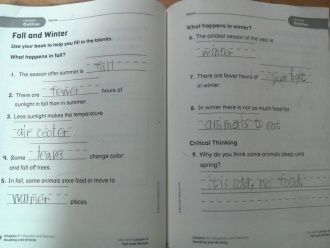 Outline
Fall and Winter
Use your book to help you fill in the blanks.
What happens in fall?
1. The season after summer is fall
2. There are fewer hours of
sunlight in fall than in summer.
3. Less sunlight makes the temperature
air cooler.
4. Some leaves change color
and fall off trees.
5. In fall, some animals store food or move to
warmer places.
What happens in winter?
6. The coldest season of the year is
winter
7. There are fewer hours of sun light
in winter.
8. In winter there is not as much food for
animals to eat
Critical Thinking
9. Why do you think some animals sleep until
spring?